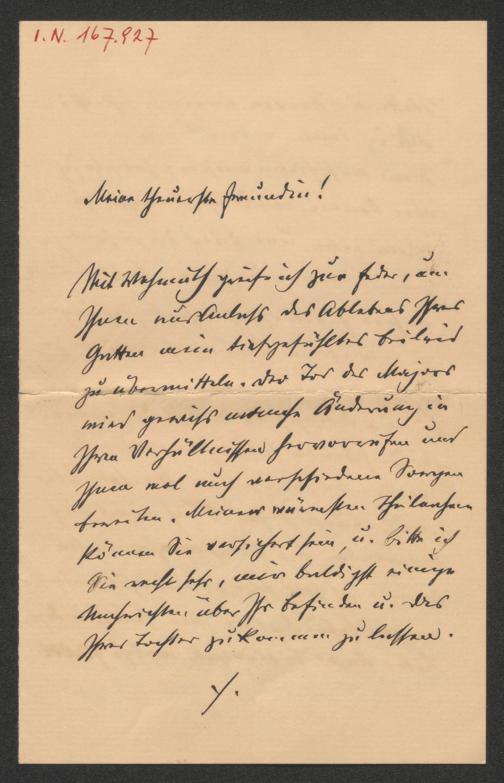 I.N. 167.927
Meine theuerste Freundin!
Mit Wehmuth greife ich zur Feder, um
Ihnen aus Anlass des Ablebens Ihres
Gatten mein tiefgefühltes Beileid
zu übermitteln. Der Tod des Majors
wird gewiss manche Änderung in
Ihren Verhältnissen hervorrufen und
Ihnen wol auch verschiedene Sorgen
bereiten. Meiner wärmsten Theilnahme
können Sie versichert sein, u. bitte ich
Sie recht sehr, mir baldigst einige
Nachrichten über Ihr Befinden u. das
Ihrer Tochter zukommen zu lassen.